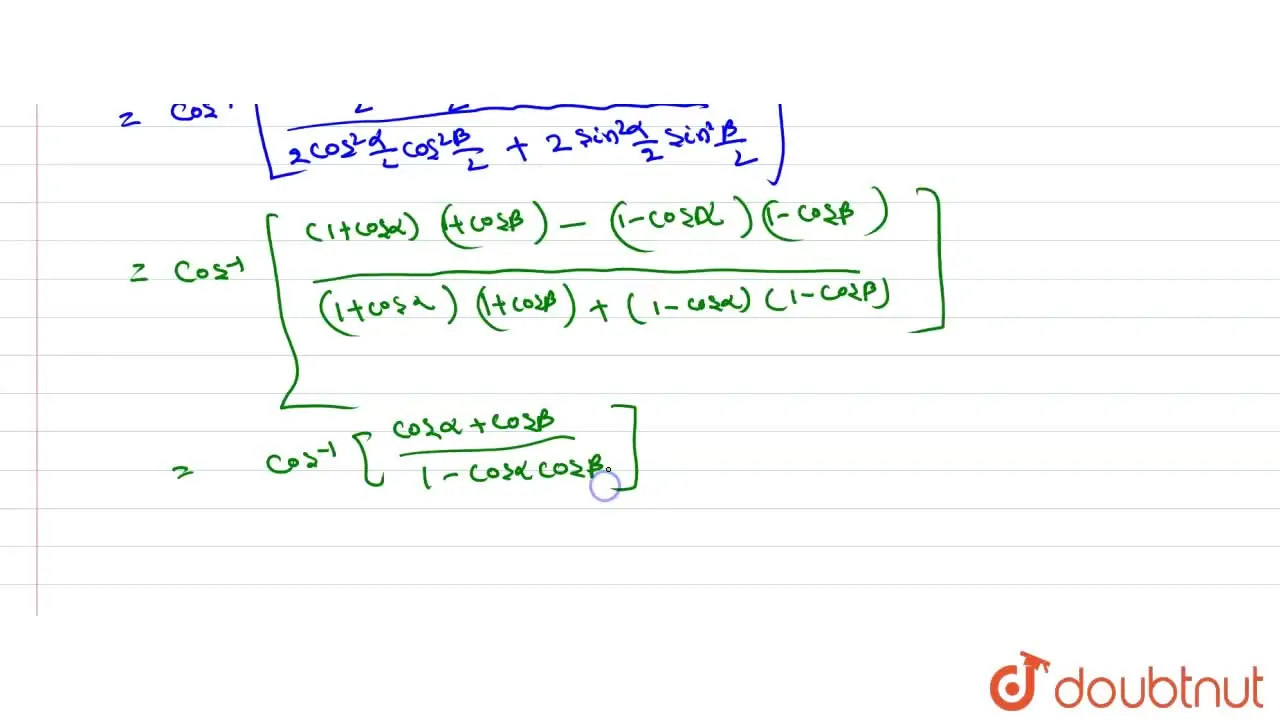 = Cos⁻¹ [ 2 2
2cos²α/2 cos²β/2 + 2 sin²α/2 sin²β/2 ]
= Cos⁻¹ [ (1+cosα) (1+cosβ) − (1−cosα) (1−cosβ)
(1+cosα) (1+cosβ) + (1−cosα) (1−cosβ) ]
= Cos⁻¹ [ cosα + cosβ
1 − cosα cosβ ]
doubtnut